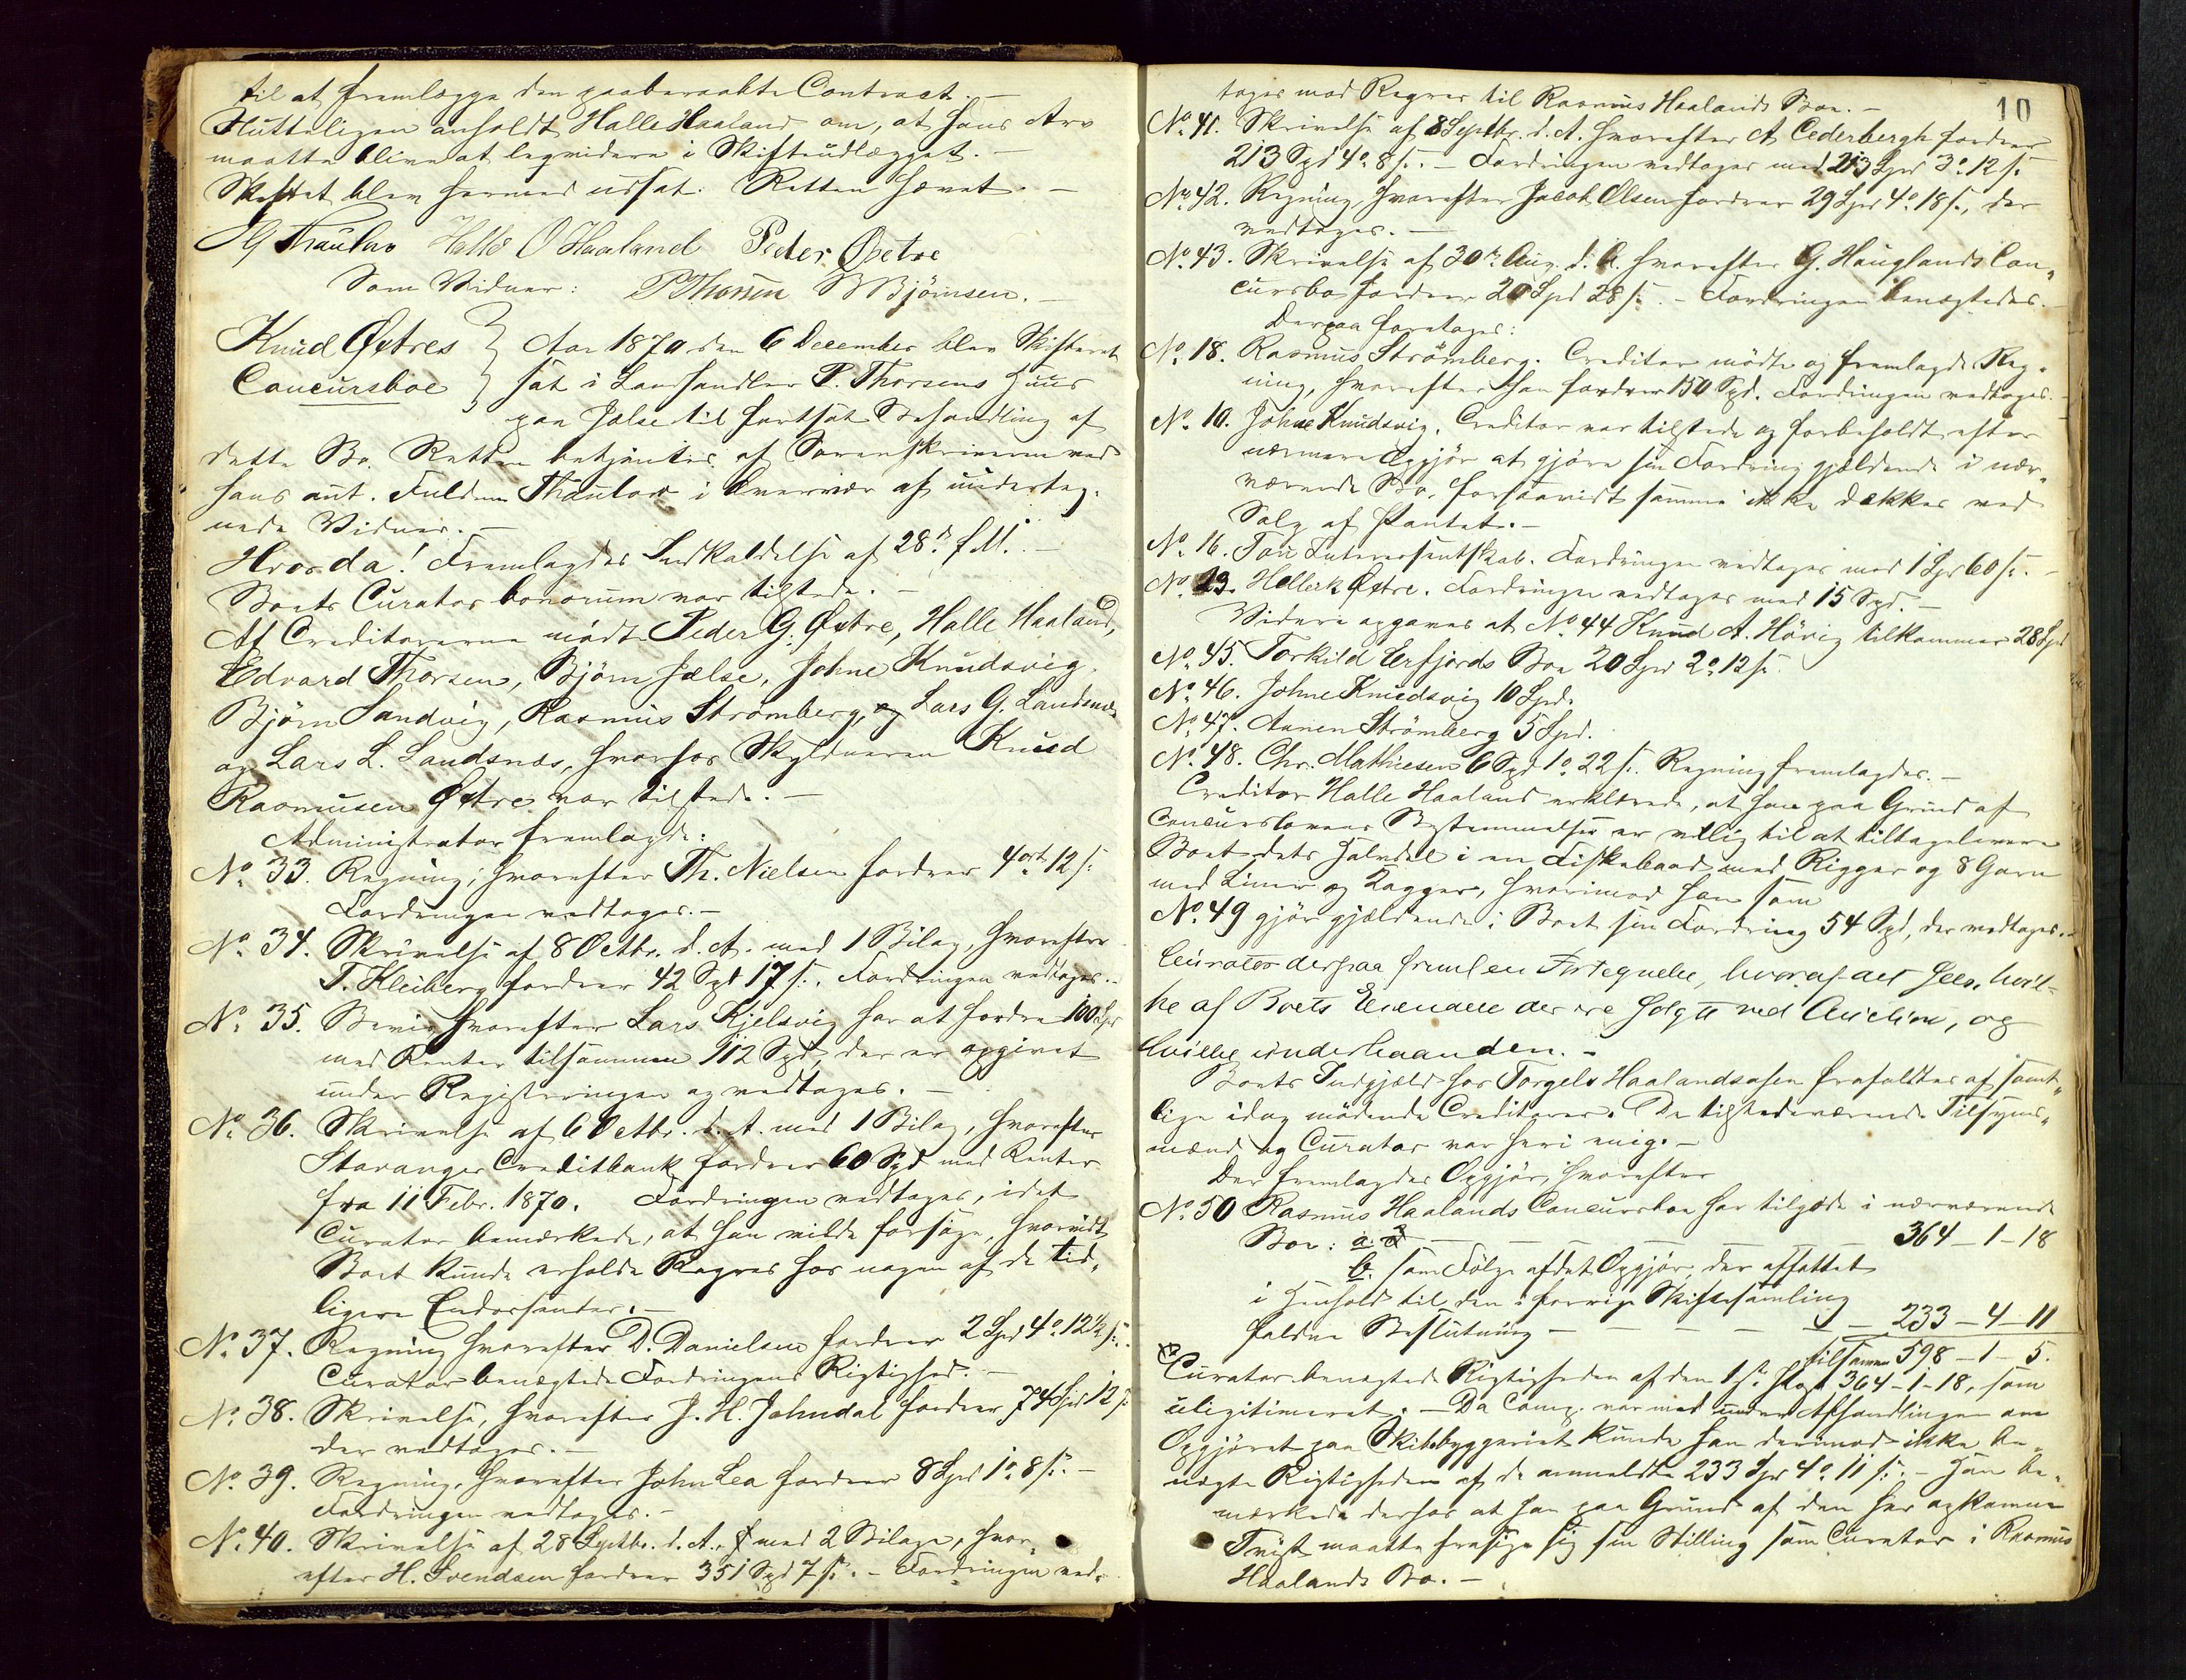 til at fremlægge den paaberaabte Contract. –
Slutteligen anholdt Halle Haaland om, at hans Arv
maatte blive at legvidere i Skifteudlægget. –
Skiftet blev hermed udsat. Retten hævet. –
Thaulow Halle O Haaland Peder Østre
Som Vidner: P Thorsen B Bjørnsen. –
Knud Østres } Aar 1870 den 6 December blev Skifteret
Concursboe } sat i Landhandler P. Thorsens Huus
paa Jelse til fortsat Behandling af
dette Bo. Retten betjentes af Sorenskriveren ved
hans aut. Fuldm. Thaulow i Overvær af underteg-
nede Vidner. –
Hvorda! Fremlagdes Indkaldelse af 28de f. M. –
Boets Curator bonorum var tilstede. –
Af Creditorerne mødte Peder G. Østre, Halle Haaland,
Edvard Thorsen, Bjørn Jelse, Johne Knudsvig,
Bjørn Sandvig, Rasmus Strømberg, og Lars G. Landsnæs
og Lars L. Landsnæs, hvorhos Skyldneren Knud
Rasmusen Østre var tilstede. –
Administrator fremlagde:
No. 33. Regning, hvorefter Th. Nielsen fordrer 4 ort 12 s.
Fordringen vedtages. –
No. 34. Skrivelse af 8 Octbr. d. A. med 1 Bilag, hvorefter
T. Kleiberg fordrer 42 Spd 17 s. Fordringen vedtages. –
No. 35. Bevis hvorefter Lars Kjelsvig har at fordre 100 Spd
med Renter tilsammen 112 Spd, der er opgivet
under Registeringen og vedtages. –
No. 36. Skrivelse af 6 Octbr. d. A. med 1 Bilag, hvorefter
Stavanger Creditbank fordrer 60 Spd med Renter
fra 11 Febr. 1870. Fordringen vedtages, idet
Curator bemærkede, at han vilde forsøge, hvorvidt
Boet kunde erholde Regres hos nogen af de tid-
ligere Endossenter. –
No. 37. Regning hvorefter D. Danielsen fordrer 2 Spd 4 o. 12½ s.
Curator benægtede Fordringens Rigtighed. –
No. 38. Skrivelse, hvorefter J. H. Johndal fordrer 74 Spd 12 s.
der vedtages. –
No. 39. Regning, hvorefter John Lea fordrer 8 Spd 1 o. 8 s. –
Fordringen vedtages. –
No. 40. Skrivelse af 28 Septbr. d. A. med 2 Bilage, hvor-
efter H. Svendsen fordrer 351 Spd 7 s. – Fordringen ved-
10
tages med Regres til Rasmus Haalands Boe. –
No. 41. Skrivelse af 8 Septbr. d. A. hvorefter A Cederbergh fordrer
213 Spd 4 o. 8 s. – Fordringen vedtages med 213 Spd 3 o. 12 s.
No. 42. Regning, hvorefter Jacob Olsen fordrer 29 Spd 4 o. 18 s., der
vedtages. –
No. 43. Skrivelse af 30te Aug. d. A. hvorefter G. Hauglands Con-
cursbo fordrer 20 Spd 28 s. – Fordringen benægtedes. –
Derpaa foretages:
No. 18. Rasmus Strømberg. Creditor mødte og fremlagde Reg-
ning, hvorefter han fordrer 150 Spd. Fordringen vedtages. –
No. 10. Johne Knudsvig. Creditor var tilstede og forbeholdt efter
nærmere Opgjør at gjøre sin Fordring gjældende i nær-
værende Bo, forsaavidt samme ikke dækkes ved
Salg af Pantet. –
No. 16. Tou Interessentskab. Fordringen vedtages med 1 Spd 60 s. –
No. 23. Hellick Østre. Fordringen vedtages med 15 Spd. –
Videre opgaves at No. 44 Knud A. Høvig tilkommer 28 Spd
No. 45. Torkild Erfjords Boe 20 Spd 2 o. 12 s.
No. 46. Johne Knudsvig 10 Spd.
No. 47. Aanen Strømberg 5 Spd.
No. 48. Chr. Mathiesen 6 Spd 1 o. 22 s. Regning fremlagdes. –
Creditor Halle Haaland erklærede, at han paa Grund af
Concurslovens Bestemmelser er villig til at tilbagelevere
Boet dets Halvdel i en Fiskebaad med Rigger og 8 Garn
med Liner og Kagger, hvorimod han som
No. 49 gjør gjældende i Boet sin Fordring 54 Spd, der vedtages. –
Curator derpaa freml en Fortegnelse, hvoraf det sees, hvil-
ke af Boets Eiendele der ere solgte ved Auction, og
hvilke underhaanden. –
Boets Indgjæld hos Torgels Haalandsasen frafaldtes af samt-
lige idag mødende Creditorer. De tilstedeværende Tilsyns-
mænd og Curator var heri enig. –
Der fremlagdes Opgjør, hvorefter
No. 50 Rasmus Haalands Concursboe har tilgode i nærværende
Boe: a. – – – – 364 – 1 – 18
b. som Følge af det Opgjør, der affattet
i Henhold til den i forrige Skiftesamling
faldne Beslutning – – – – 233 – 4 – 11
tilsammen 598 – 1 – 5.
Curator benægtede Rigtigheden af den 1ste Post 364 – 1 – 18, som
ulegitimeret. – Da Comp. var med under Afhandlingen om
Opgjøret paa Skibsbyggeriet kunde han derimod ikke be-
nægte Rigtigheden af de anmeldte 233 Spd 4 o. 11 s. – Han be-
mærkede derhos at han paa Grund af den her opkomne
Tvist maatte frasige sig sin Stilling som Curator i Rasmus
Haalands Bo. –